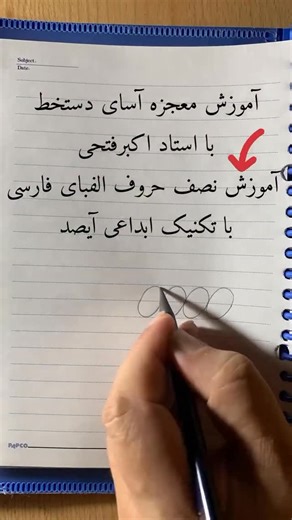 Subject:
Date:
آموزش معجزه آسای دستخط
با استاد اکبرفتحی
آموزش نصف حروف الفبای فارسی
با تکنیک ابداعی آیصد
PAPCO